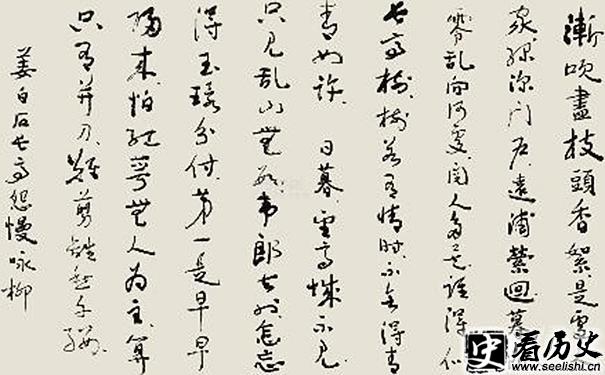 漸吹盡枝頭香絮是處
家綠深門戶遠浦縈迴暮
零乱向何處閱人多矣誰得似
长亭樹樹若有情時不會得青
青如許 日暮望高城不見
只見乱山無数韦郎去也怎忘
得玉環分付第一是早早
歸来怕紅萼無人为主算
只有并刀難剪離愁千縷
姜白石长亭怨慢咏柳
史看历史
www.seelishi.cn